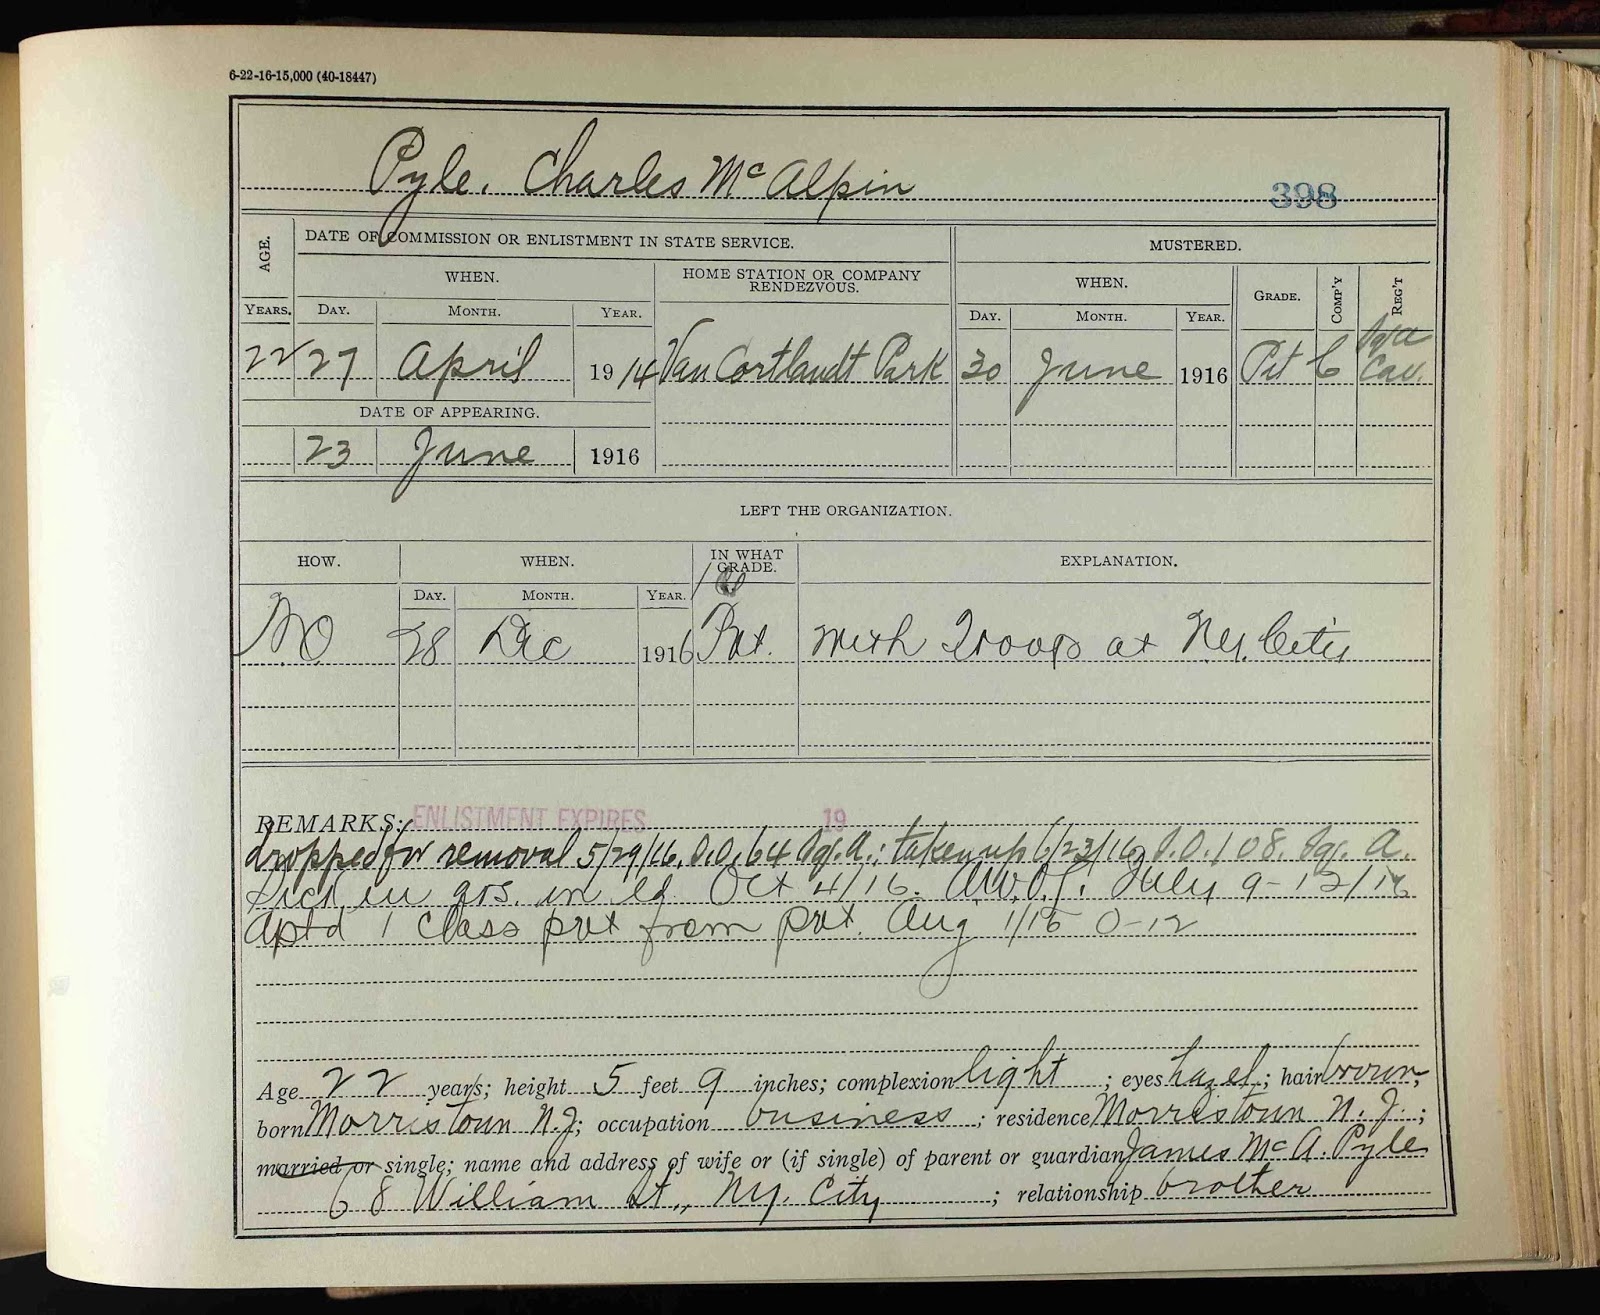 6-22-16-15,000 (40-18447)
Pyle, Charles McAlpin
398
AGE.
DATE OF COMMISSION OR ENLISTMENT IN STATE SERVICE.
MUSTERED.
WHEN.
HOME STATION OR COMPANY RENDEZVOUS.
WHEN.
GRADE.
COMP'Y
REG'T
YEARS.
DAY.
MONTH.
YEAR.
DAY.
MONTH.
YEAR.
22 27 April 1914 Van Cortlandt Park 30 June 1916 Pvt C Cav.
DATE OF APPEARING.
23 June 1916
LEFT THE ORGANIZATION.
HOW.
WHEN.
IN WHAT GRADE.
EXPLANATION.
DAY.
MONTH.
YEAR.
MO 28 Dec 1916 Pvt. with Troops at N.Y. City
REMARKS: ENLISTMENT EXPIRES 19
dropped for removal 5/29/16. S.O. 64 Sq. A.; taken up 6/23/16 S.O. 108. Sq. A.
Sick in qrs. in ld Oct 4/16. A.W.O.L. July 9-12/16
Aptd 1 class pvt from pvt. Aug 1/16 O-12
Age 22 years; height 5 feet 9 inches; complexion light; eyes hazel; hair brown;
born Morristown N.J; occupation business; residence Morristown N.J.;
married or single; name and address of wife or (if single) of parent or guardian James McA. Pyle
68 William St., N.Y. City; relationship brother